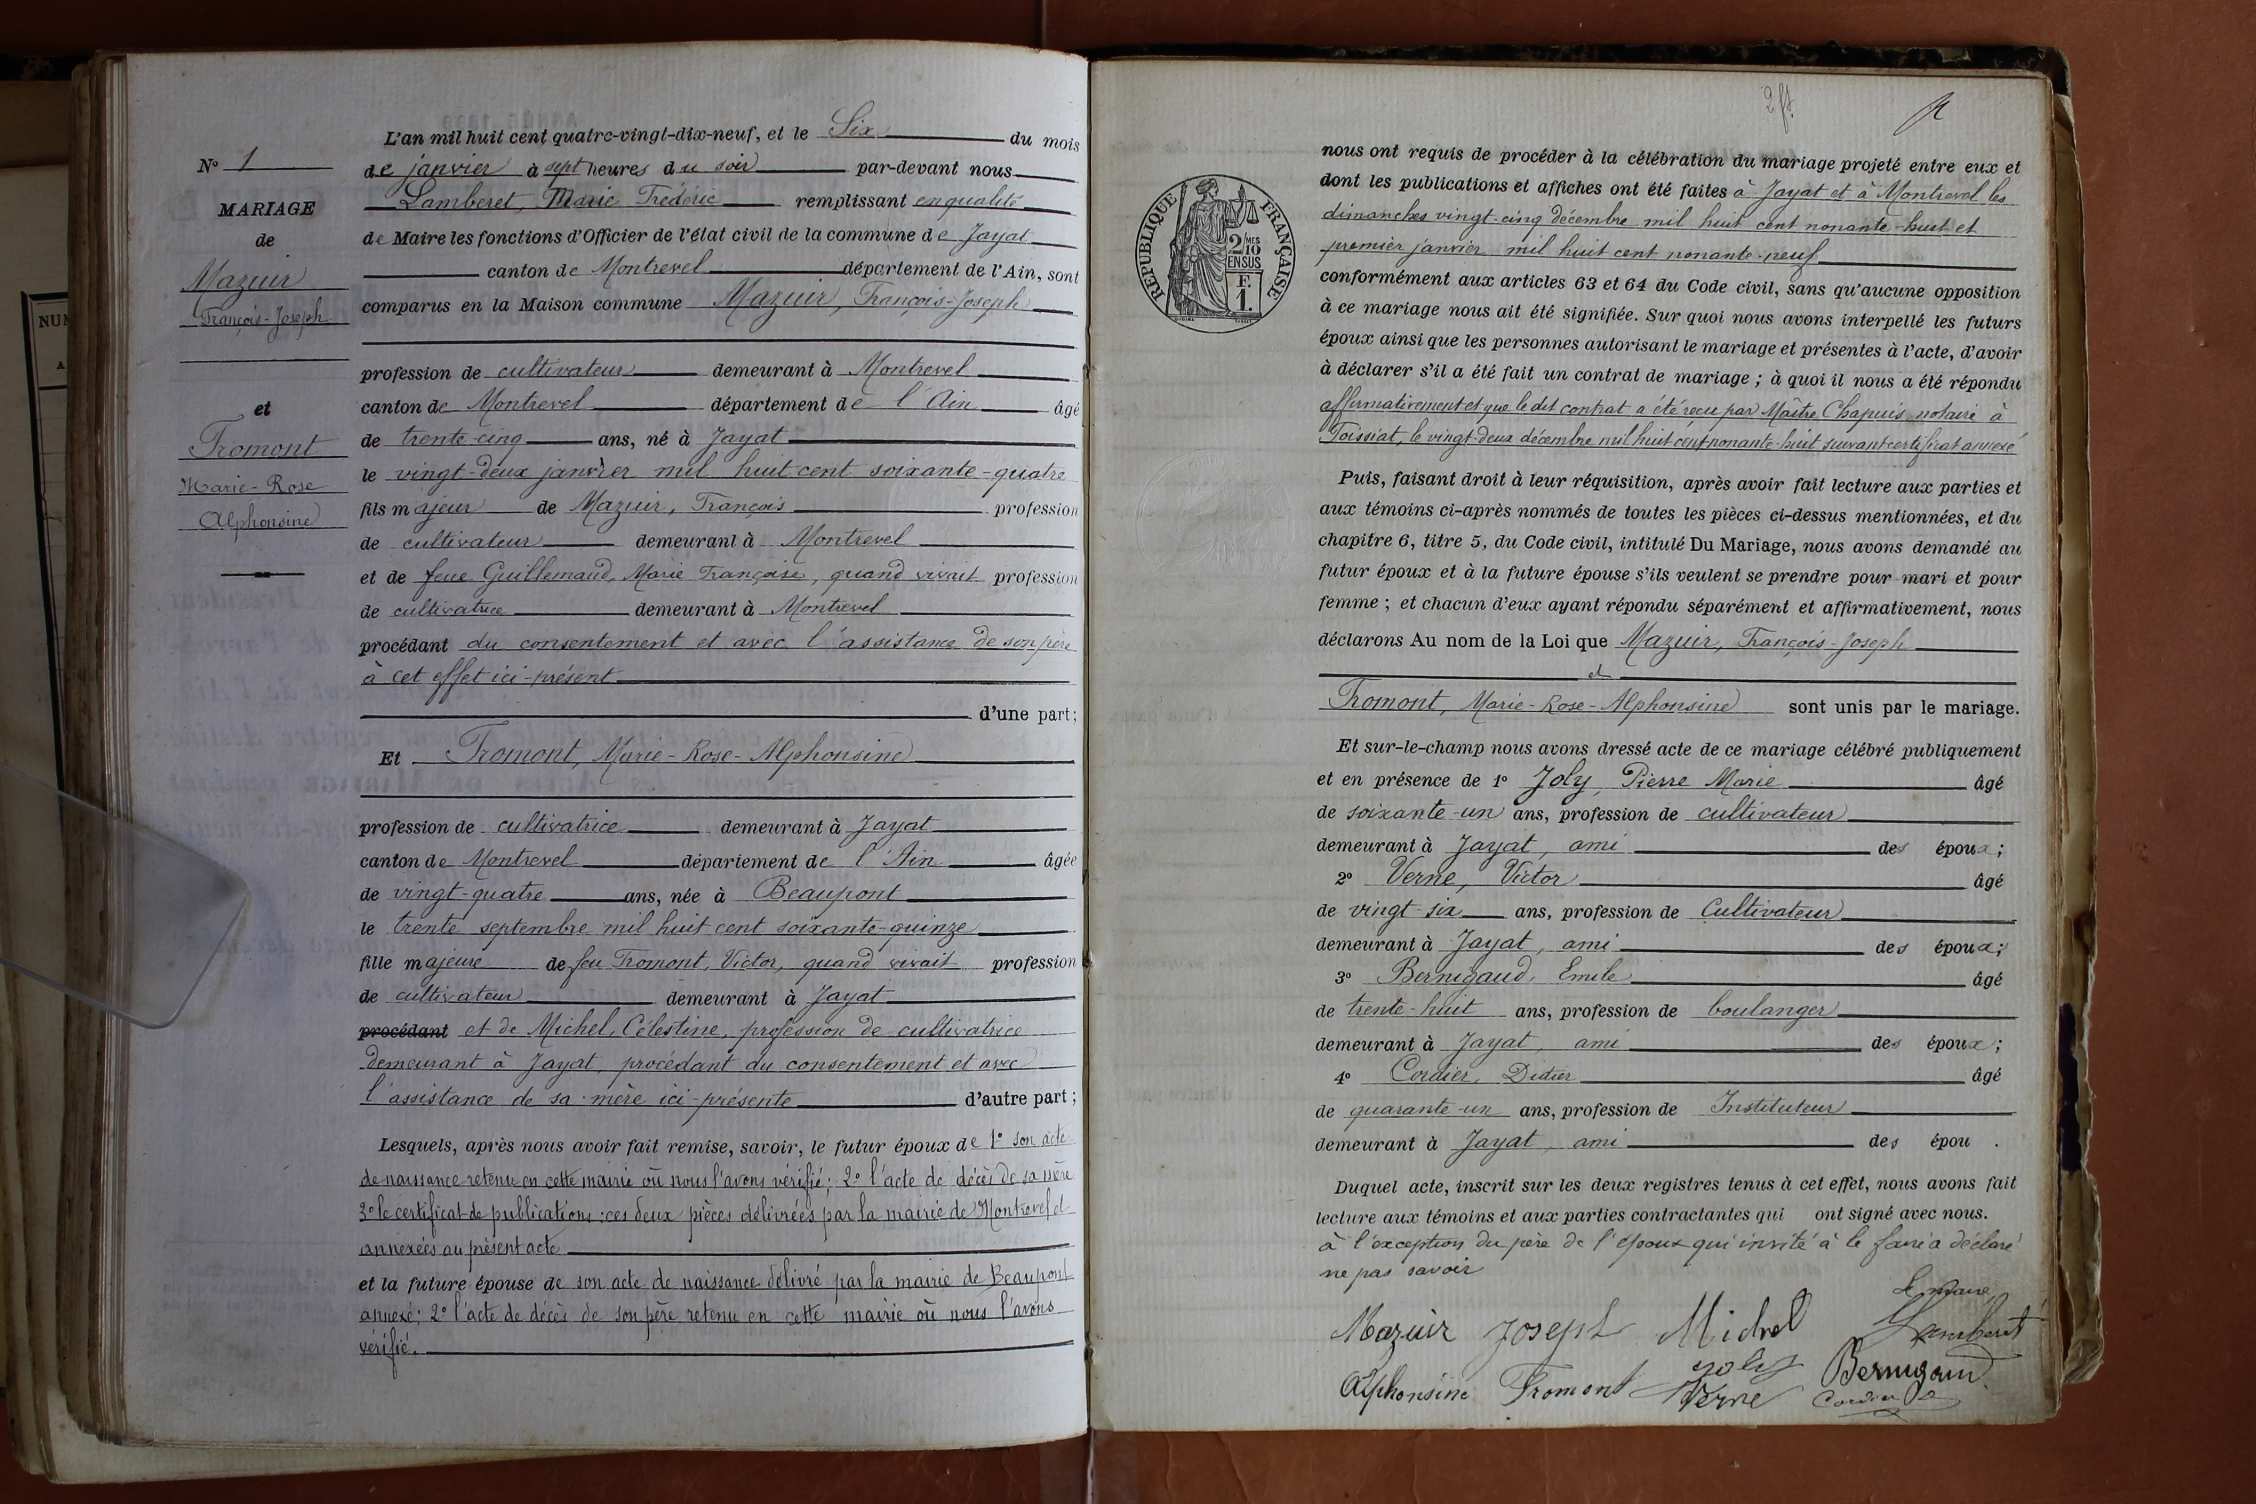 L'an mil huit cent quatre-vingt-dix-neuf, et le Six du mois
N° 1
de janvier à sept heures du soir par-devant nous
MARIAGE
Lamberet, Marie Frédéric remplissant en qualité
de
de Maire les fonctions d'Officier de l'état civil de la commune de Jayat
Mazuir
canton de Montrevel département de l'Ain, sont
François-Joseph
comparus en la Maison commune Mazuir, François-Joseph
profession de cultivateur demeurant à Montrevel
et
canton de Montrevel département de l'Ain âgé
Fromont
de trente-cinq ans, né à Jayat
Marie-Rose
le vingt-deux janvier mil huit cent soixante-quatre
Alphonsine
fils majeur de Mazuir, François profession
de cultivateur demeurant à Montrevel
et de feue Guillemaud, Marie Françoise, quand vivait profession
de cultivatrice demeurant à Montrevel
procédant du consentement et avec l'assistance de son père
à cet effet ici-présent
d'une part;
Et Fromont, Marie-Rose-Alphonsine
profession de cultivatrice demeurant à Jayat
canton de Montrevel département de l'Ain âgée
de vingt-quatre ans, née à Beaupont
le trente septembre mil huit cent soixante-quinze
fille majeure de feu Fromont, Victor, quand vivait profession
de cultivateur demeurant à Jayat
procédant et de Michel, Célestine, profession de cultivatrice
demeurant à Jayat, procédant du consentement et avec
l'assistance de sa mère ici-présente d'autre part;
Lesquels, après nous avoir fait remise, savoir, le futur époux de 1° son acte
de naissance retenu en cette mairie où nous l'avons vérifié; 2° l'acte de décès de sa mère
3° le certificat de publications: ces deux pièces délivrées par la mairie de Montrevel et
annexées au présent acte
et la future épouse de son acte de naissance délivré par la mairie de Beaupont
annexé; 2° l'acte de décès de son père retenu en cette mairie où nous l'avons
vérifié.
2 ft.
RÉPUBLIQUE FRANÇAISE
2/10MES
EN SUS
F.
1.
nous ont requis de procéder à la célébration du mariage projeté entre eux et
dont les publications et affiches ont été faites à Jayat et à Montrevel les
dimanches vingt-cinq décembre mil huit cent nonante-huit et
premier janvier mil huit cent nonante-neuf
conformément aux articles 63 et 64 du Code civil, sans qu'aucune opposition
à ce mariage nous ait été signifiée. Sur quoi nous avons interpellé les futurs
époux ainsi que les personnes autorisant le mariage et présentes à l'acte, d'avoir
à déclarer s'il a été fait un contrat de mariage; à quoi il nous a été répondu
affirmativement et que le dit contrat a été reçu par Maître Chapuis notaire à
Foissiat, le vingt-deux décembre mil huit cent nonante-huit suivant certificat annexé
Puis, faisant droit à leur réquisition, après avoir fait lecture aux parties et
aux témoins ci-après nommés de toutes les pièces ci-dessus mentionnées, et du
chapitre 6, titre 5, du Code civil, intitulé Du Mariage, nous avons demandé au
futur époux et à la future épouse s'ils veulent se prendre pour mari et pour
femme; et chacun d'eux ayant répondu séparément et affirmativement, nous
déclarons Au nom de la Loi que Mazuir, François-Joseph
et
Fromont, Marie-Rose-Alphonsine sont unis par le mariage.
Et sur-le-champ nous avons dressé acte de ce mariage célébré publiquement
et en présence de 1° Joly, Pierre Marie âgé
de soixante-un ans, profession de cultivateur
demeurant à Jayat, ami des époux;
2° Verne, Victor âgé
de vingt-six ans, profession de Cultivateur
demeurant à Jayat, ami des époux;
3° Bernigaud, Emile âgé
de trente-huit ans, profession de boulanger
demeurant à Jayat, ami des époux;
4° Cordier, Didier âgé
de quarante-un ans, profession de Instituteur
demeurant à Jayat, ami des épou .
Duquel acte, inscrit sur les deux registres tenus à cet effet, nous avons fait
lecture aux témoins et aux parties contractantes qui ont signé avec nous.
à l'exception du père de l'époux qui invité à le faire a déclaré
ne pas savoir
Le maire
Mazuir Joseph Michel Lamberet
Alphonsine Fromont Joly Bernigaud
Verne Cordier